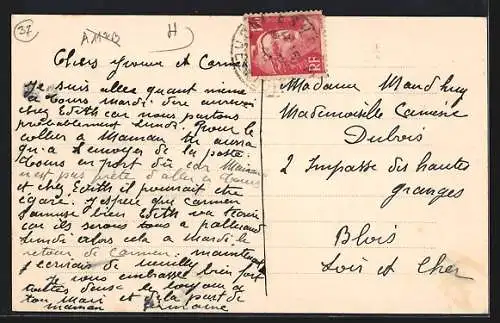 37
H
Chers Yvonne et Carmen
Je suis allée quant même
à Tours Mardi dire aurevoir
chez Edith car nous partons
probablement Lundi pour le
collier a Maman tu auras
qu'a l'envoyer de la poste
Tours en port dû car Maman
n'est pas prête d'aller a Tours
et chez Edith il pourrait etre
égaré. J'espère que Carmen
s'amuse bien Edith va
car ils serons tous a
Lundi alors cela a Mardi le
retour de Carmen. maintenant
j'écrirais de Neuilly
Je vous embrasse bien fort
toutes deux le
ton Mari et de la part de
maman
RF
Madame
Mademoiselle
Dubois
2 Impasse des hautes
granges
Blois
Loir et Cher